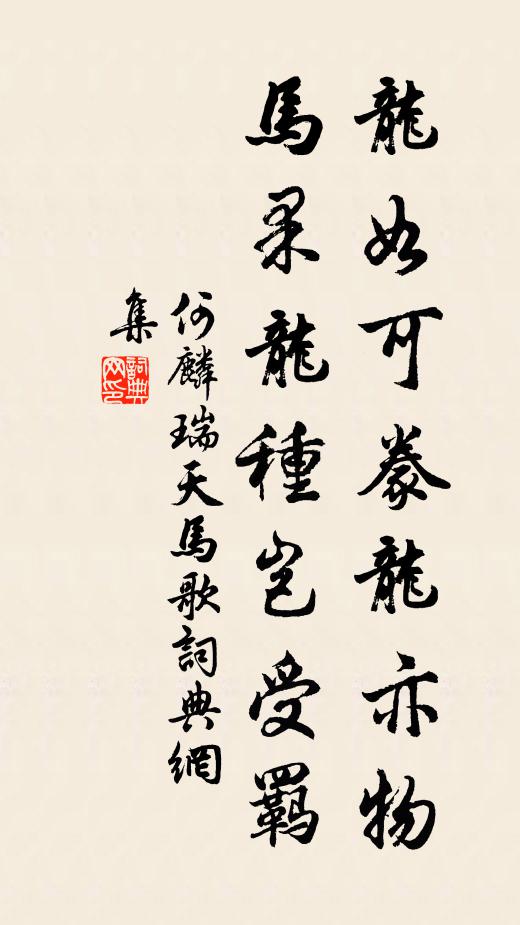 龍如可豢龍亦物
馬果龍種豈受羈
何麟瑞天馬歌詞典網
集
詞典
网印